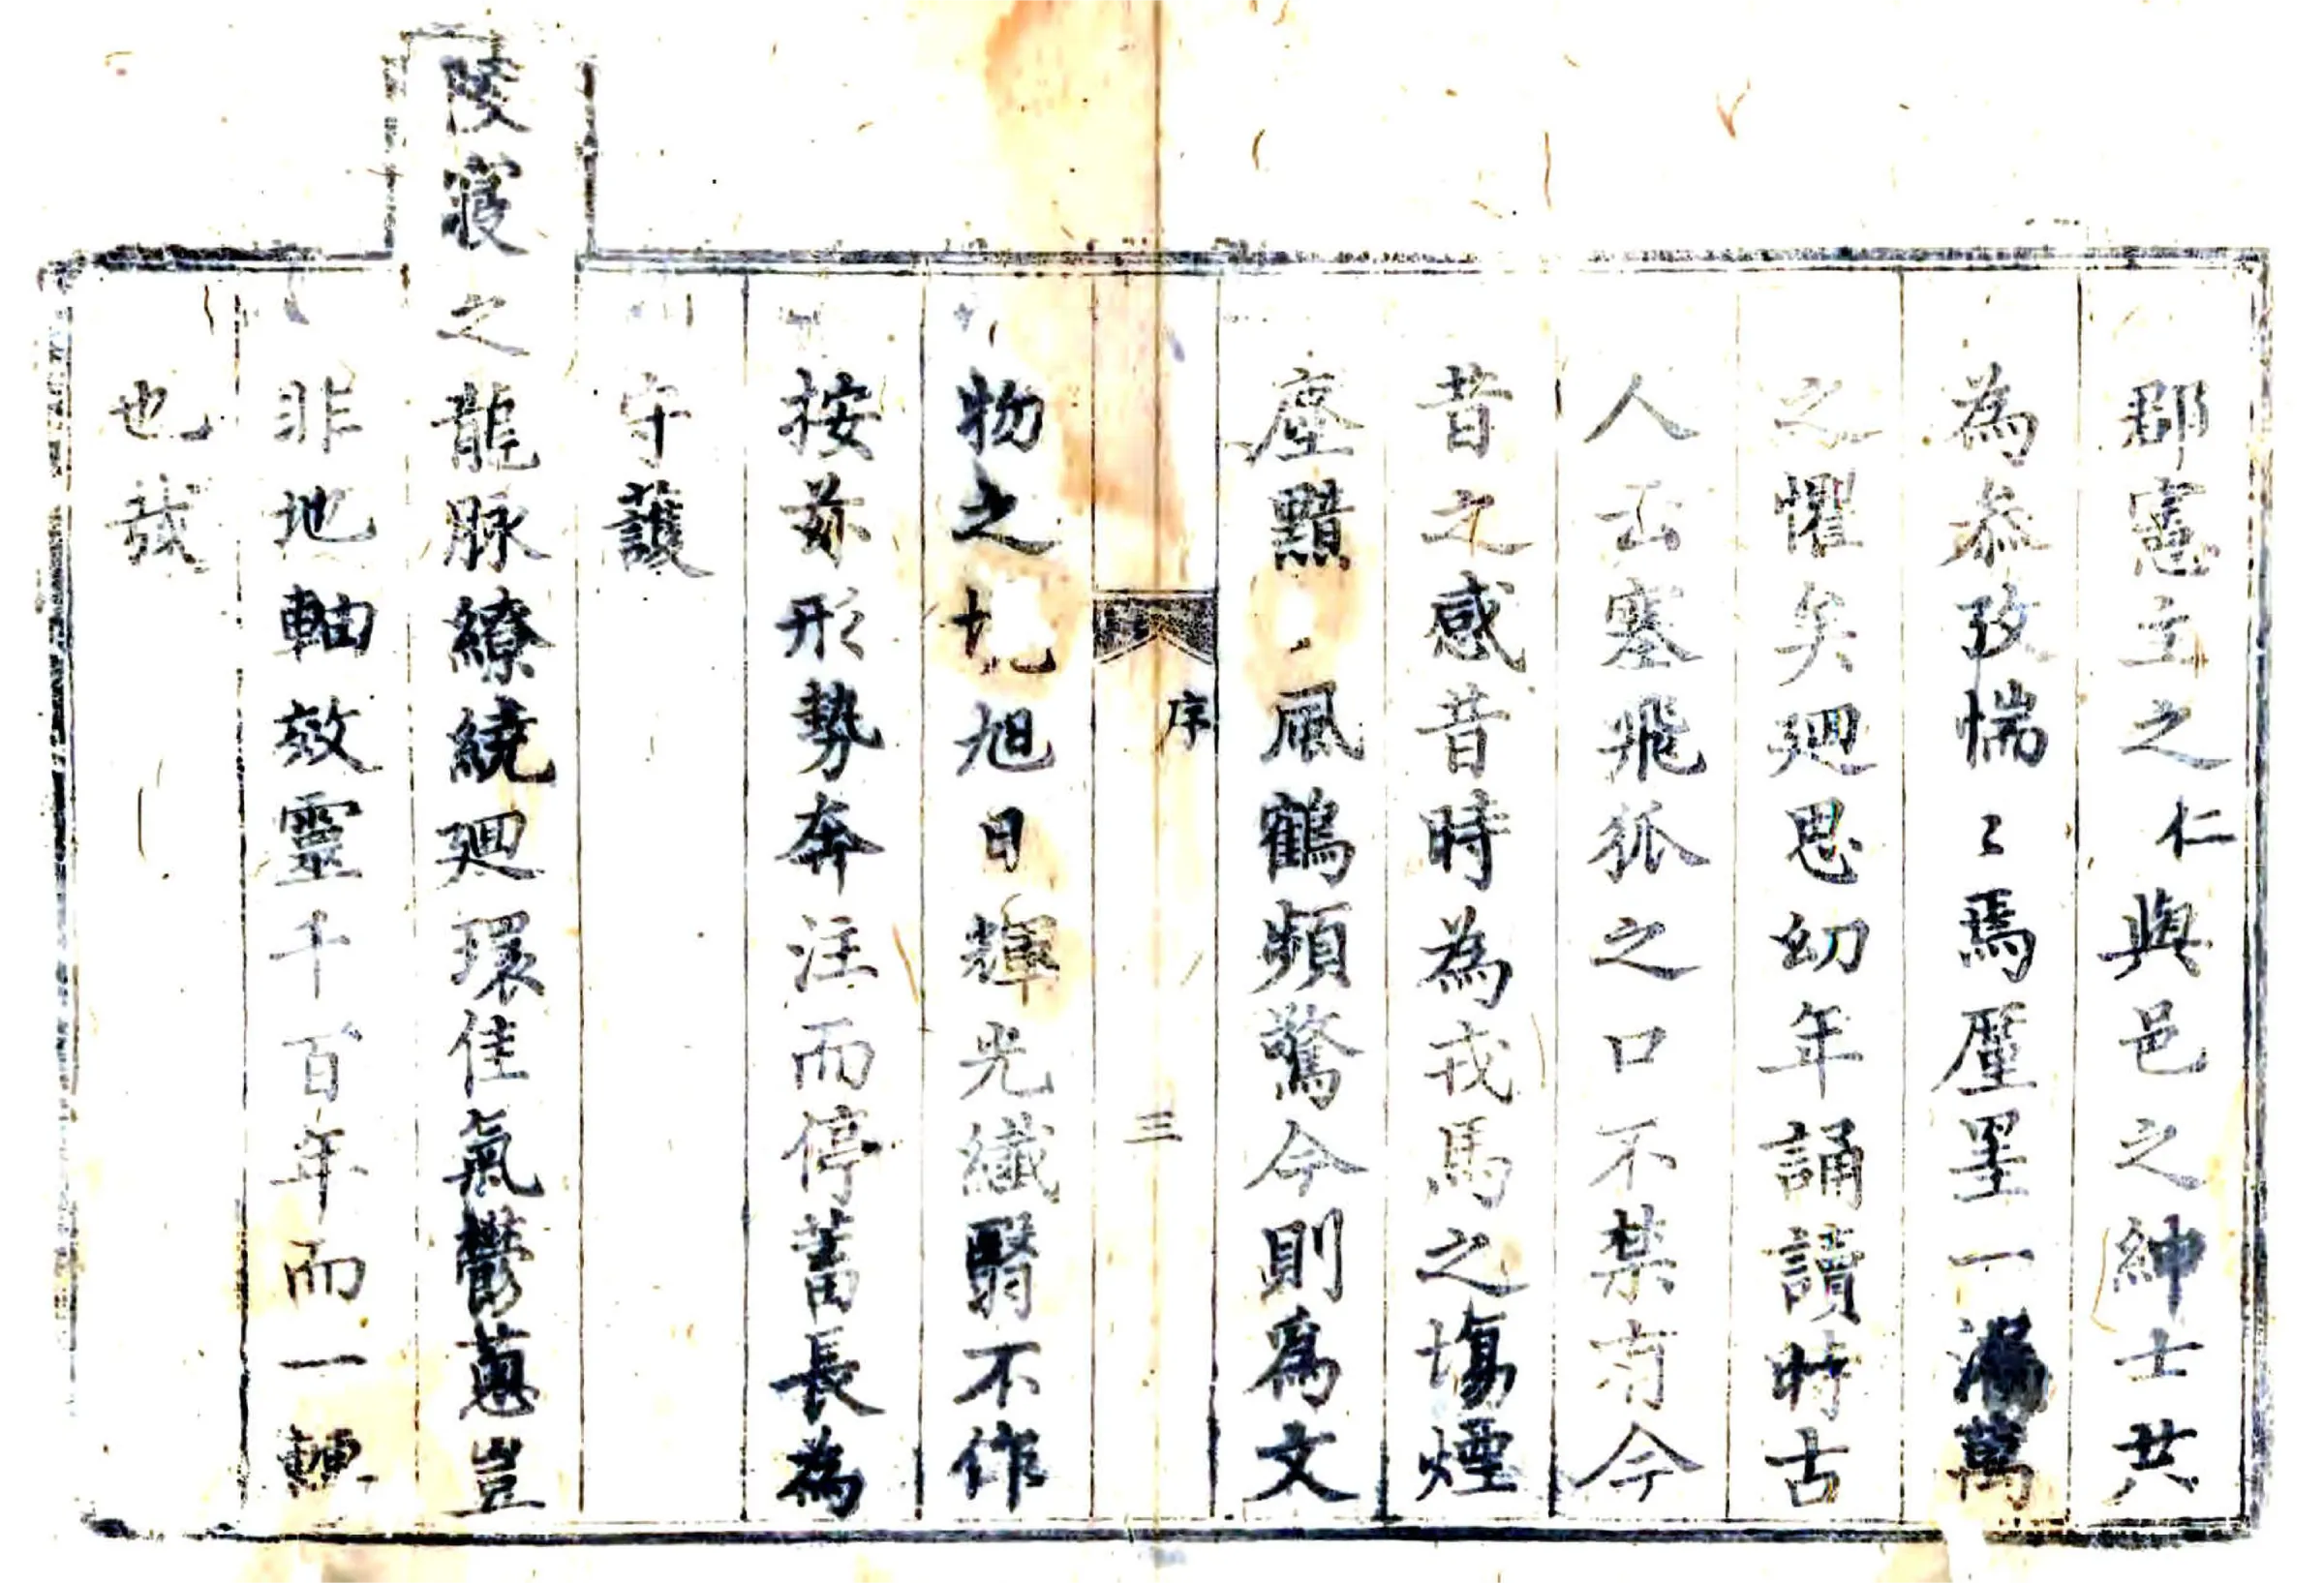 郡憲主之仁與邑之紳士共
為叅攷惴〻焉廑墨一漏萬
之懼矣廻思幼年誦讀時古
人云塞飛狐之口不禁有今
昔之感昔時為戎馬之塲煙
塵黯風鶴頻驚今則爲文
序
三
物之旭日輝光纖翳不作
按茲形勢奔注而停蓄長為
守護
陵寢之龍脉繚繞廻環佳氣鬱蔥豈
非地軸效靈千百年而一
也哉